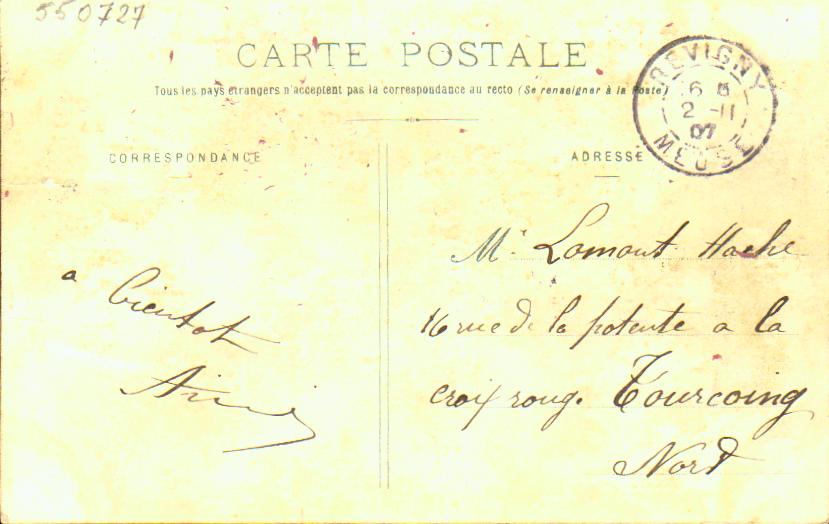 550727
CARTE POSTALE
Tous les pays étrangers n'acceptent pas la correspondance au recto (Se renseigner à la Poste)
CORRESPONDANCE
ADRESSE
REVIGNY
6
2 -11
07
MEUSE
a bientot
Mr Lomont Hache
16 rue de la potente a la
croix rouge Tourcoing
Nord